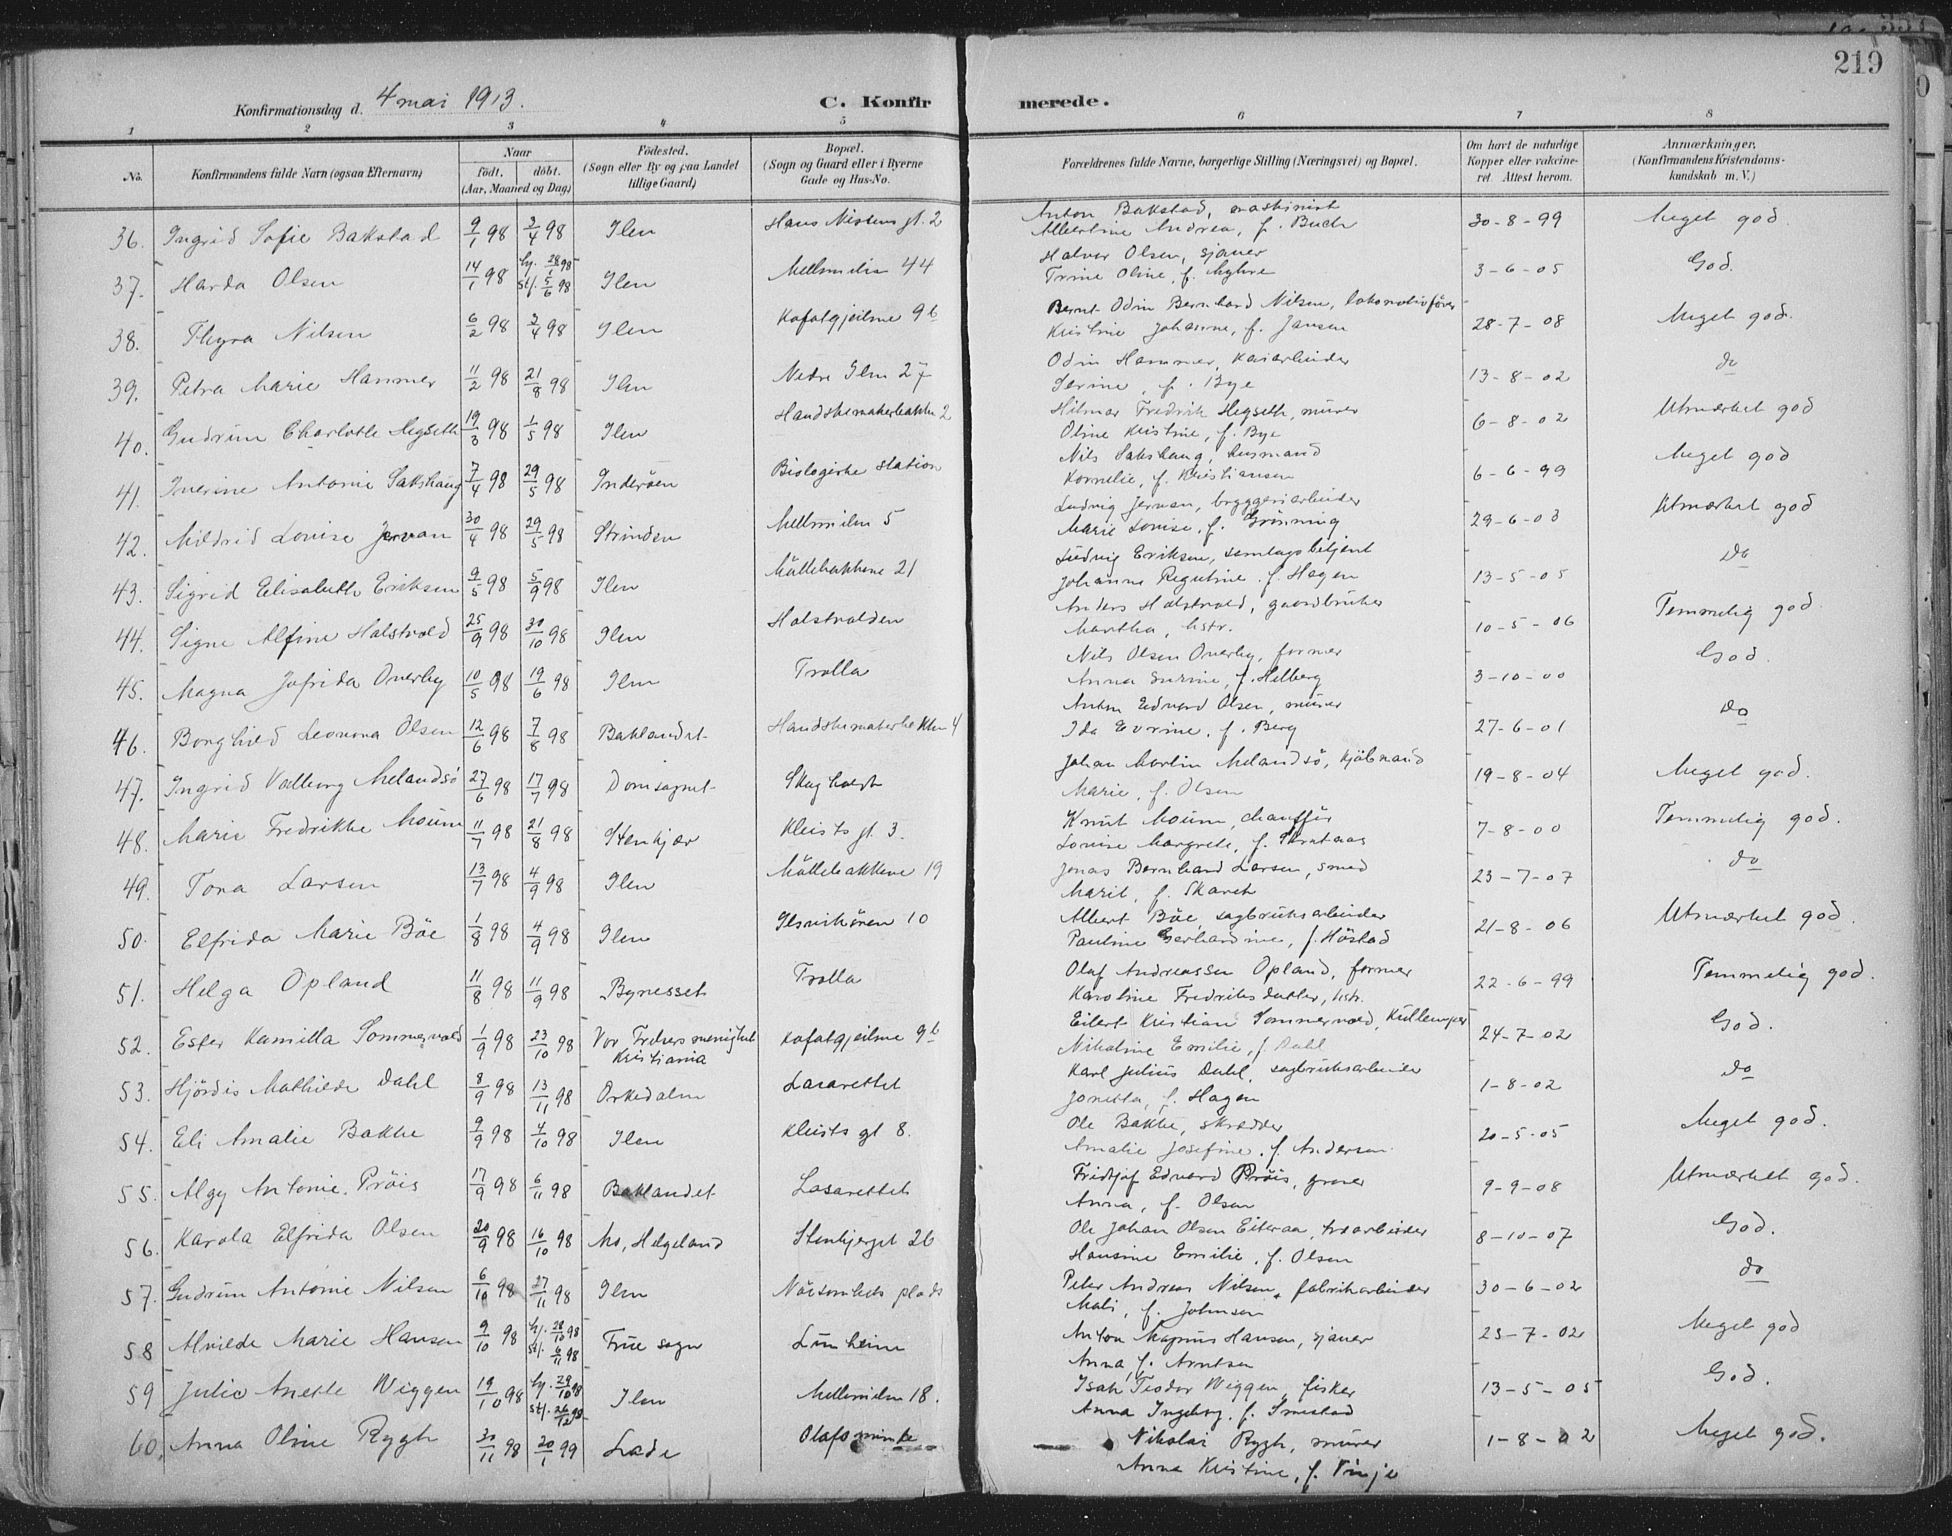 219
Konfirmationsdag d. 4 mai 1913.
C. Konfirmerede.
1 2 3 4 5 6 7 8
No.
Konfirmandens fulde Navn (ogsaa Efternavn)
Naar
født. døbt.
(Aar, Maaned og Dag)
Fødested.
(Sogn eller By og paa Landet
tillige Gaard)
Bopæl.
(Sogn og Gaard eller i Byerne
Gade og Hus-No.
Forældrenes fulde Navne, borgerlige Stilling (Næringsvei) og Bopæl.
Om havt de naturlige
Kopper eller vakcine-
ret. Attest herom.
Anmærkninger,
(Konfirmandens Kristendoms-
kundskab m. V.)
36. Ingrid Sofie Bakstad 9/1 98 3/4 98 Ilen Hans Nissens gt. 2 Anton Bakstad, maskinist 30-8-99 Meget god
Albertine Andrea, f. Buch
37. Harda Olsen 14/1 98 hj. 28/1 98 stf. 5/6 98 Ilen Mellemilen 44 Halvor Olsen, sjauer 3-6-05 God.
Trine Oline, f. Myhre
38. Thyra Nilsen 6/2 98 3/4 98 Ilen Kafatgjeilme 9b Bernt Odin Bernhard Nilsen, lokomotivfører 28-7-08 Meget god.
Kristine Johanne, f. Jansen
39. Petra Marie Hammer 11/2 98 21/8 98 Ilen Nedre Ilen 27 Odin Hammer, kaiarbeider 13-8-02 do
Serine, f. Bye
40. Gudrun Charlotte Hegseth 19/3 98 1/5 98 Ilen Handskemakerbakken 2 Hilmar Fredrik Hegseth, murer 6-8-02 Utmærket god
Oline Kristine, f. Bye
41. Inerine Antonie Sakshaug 7/4 98 29/5 98 Inderøen Biologiske station Nils Sakshaug, husmand 6-6-99 Meget god
Kornelie, f. Kristiansen
42. Mildrid Lovise Jervan 30/4 98 29/5 98 Strinden Mellemilen 5 Ludvig Jervan, bryggeriarbeider 29-6-03 Utmærket god
Marie Lovise, f. Grønning
43. Sigrid Elisabeth Eriksen 9/5 98 5/9 98 Ilen Møllebakkene 21 Ludvig Eriksen, samlagsbetjent 13-5-05 do
Johanne Regutine f. Hagen
44. Signe Alfine Halstvold 25/9 98 30/10 98 Ilen Halstvolden Anders Halstvold, gaardbruker 10-5-06 Temmelig god
Martha, hstr.
45. Magna Jofrida Överby 10/5 98 19/6 98 Ilen Trolla Nils Olsen Överby, former 3-10-00 God.
Anna Serine, f. Helberg
46. Borghild Leonora Olsen 12/6 98 7/8 98 Baklandet Handskemakerbakken 4 Anton Edvard Olsen, murer 27-6-01 do
Ida Evrine, f. Berg
47. Ingrid Valborg Melandsø 27/6 98 17/7 98 Domsognet Skogholdt Johan Martin Melandsø, kjøbmand 19-8-04 Meget god.
Marie, f. Olsen
48. Marie Fredrikke Moum 11/7 98 21/8 98 Stenkjær Kleists gt. 3. Knut Moum, chauffør 7-8-00 Temmelig god.
Lovise Margrete, f.
49. Tora Larsen 13/7 98 4/9 98 Ilen Møllebakkene 19 Jonas Bernhard Larsen, smed 23-7-07 do
Marit, f. Skaret
50. Elfrida Marie Bøe 1/8 98 4/9 98 Ilen Ilsvikøren 10 Albert Bøe, sagbruksarbeider 21-8-06 Utmærket god.
Pauline Gerhardine, f. Høstad
51. Helga Opland 11/8 98 11/9 98 Bynesset Trolla Olaf Andreassen Opland, former 22-6-99 Temmelig god.
Karoline Fredriksdatter, hstr.
52. Ester Kamilla Sommervold 1/9 98 23/10 98 Vor Frelsers menighet Kristiania Kafatgjeilme 9b Eilert Kristian Sommervold, Kullemper 24-7-02 God.
Nikoline Emilie, f. Dahl
53. Hjördis Mathilde Dahl 8/9 98 13/11 98 Orkedalen Lasarettet Karl Julius Dahl, sagbruksarbeider 1-8-02 do
Jonetta, f. Hagen
54. Eli Amalie Bakke 9/9 98 4/10 98 Ilen Kleists gt 8. Ole Bakke, skrædder 20-5-05 Meget god.
Amalie Josefine, f. Andersen
55. Algy Antonie Pröis 17/9 98 6/11 98 Baklandet Lasarettet Fridtjof Edvard Pröis, graver 9-9-08 Utmærket god.
Anna, f. Olsen
56. Karola Elfrida Olsen 20/9 98 16/10 98 Mo, Helgeland Stenbjerget 26 Ole Johan Olsen Eiteraa, 8-10-07 God.
Hansine Emilie, f. Olsen
57. Gudrun Antonie Nilsen 6/10 98 27/11 98 Ilen Nøisomheds plads Peter Andreas Nilsen, fabrikarbeider 30-6-02 do
Mali, f. Johnsen
58 Alvilde Marie Hansen 9/10 98 hj. 28/10 98 stf. 6/11 98 Frue sogn Lunheim Anton Magnus Hansen, sjauer 23-7-02 Meget god
Anna f. Arntsen
59 Julie Anette Wiggen 19/10 98 hj. 29/10 98 stf. 26/12 98 Ilen Mellemilen 18. Isak Teodor Wiggen, fisker 13-5-05 God.
Anna Ingeborg, f. Smestad
60. Anna Oline Rygh 30/11 98 20/1 99 Lade Olafsminke Nikolai Rygh, murer 1-8-02 Meget god.
Anna Kristine, f. Vinje